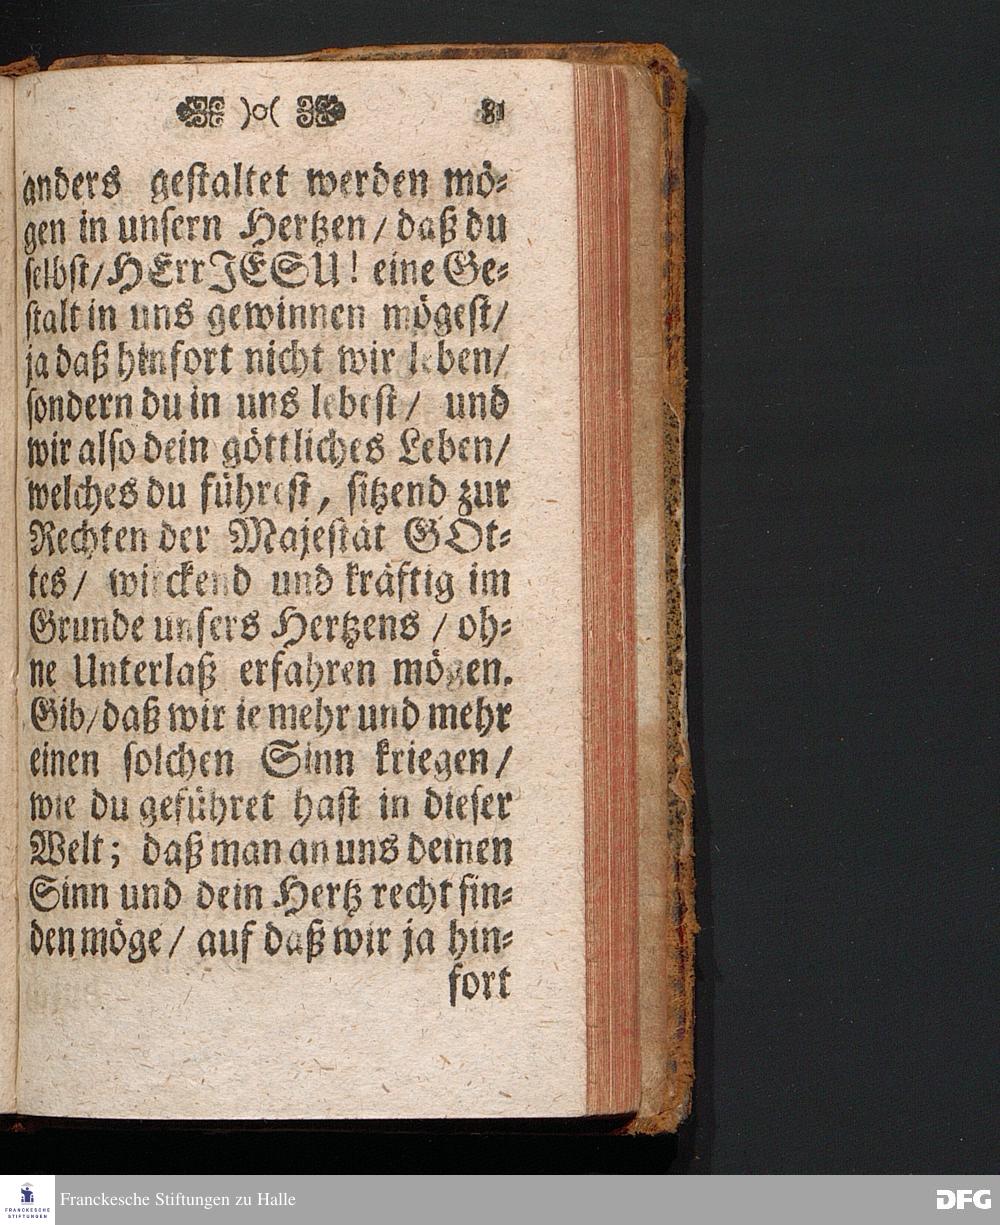 )o( 81
anders gestaltet werden mö-
gen in unsern Hertzen/ daß du
selbst/ HErr JESU! eine Ge-
stalt in uns gewinnen mögest/
ja daß hinfort nicht wir leben/
sondern du in uns lebest/ und
wir also dein göttliches Leben/
welches du führest, sitzend zur
Rechten der Majestät GOt-
tes/ wirckend und kräftig im
Grunde unsers Hertzens / oh-
ne Unterlaß erfahren mögen.
Gib/ daß wir ie mehr und mehr
einen solchen Sinn kriegen/
wie du geführet hast in dieser
Welt; daß man an uns deinen
Sinn und dein Hertz recht fin-
den möge/ auf daß wir ja hin-
fort
FRANCKESCHE STIFTUNGEN Franckesche Stiftungen zu Halle DFG